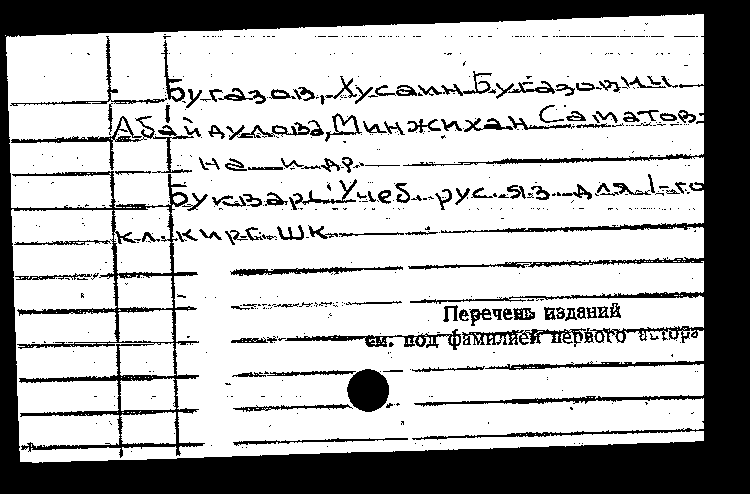 Бугазов, Хусаин Бугазович
Абайдулова, Минжихан Саматов-
на и др.
Букварь: Учеб. рус. яз. для 1-го
кл. кирг. шк.
Перечень изданий
см. под фамилией первого автора